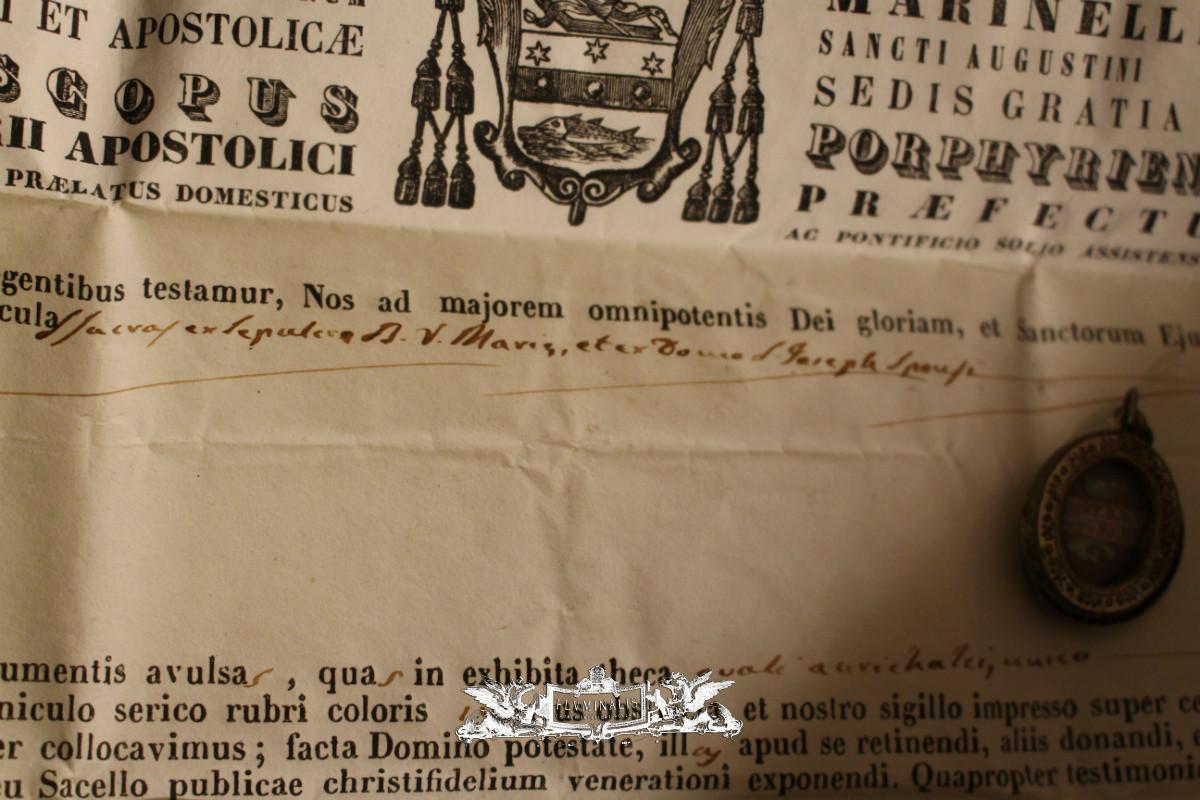 ET APOSTOLICÆ
SCOPUS
RII APOSTOLICI
PRÆLATUS DOMESTICUS
MARINELLI
SANCTI AUGUSTINI
SEDIS GRATIA
PORPHYRIEN
PRÆFECTU
AC PONTIFICIO SOLIO ASSISTENS
gentibus testamur, Nos ad majorem omnipotentis Dei gloriam, et Sanctorum Eju
culas sacras ex Sepulcro B. V. Mariæ, et ex Domo S. Joseph Sponsi
umentis avulsas, quas in exhibita theca ovali aurichalci, unico
niculo serico rubri coloris et nostro sigillo impresso super
er collocavimus; facta Domino potestate, illas apud se retinendi, aliis donandi,
eu Sacello publicae christifidelium venerationi exponendi. Quapropter testimoni
ALUMINALIS